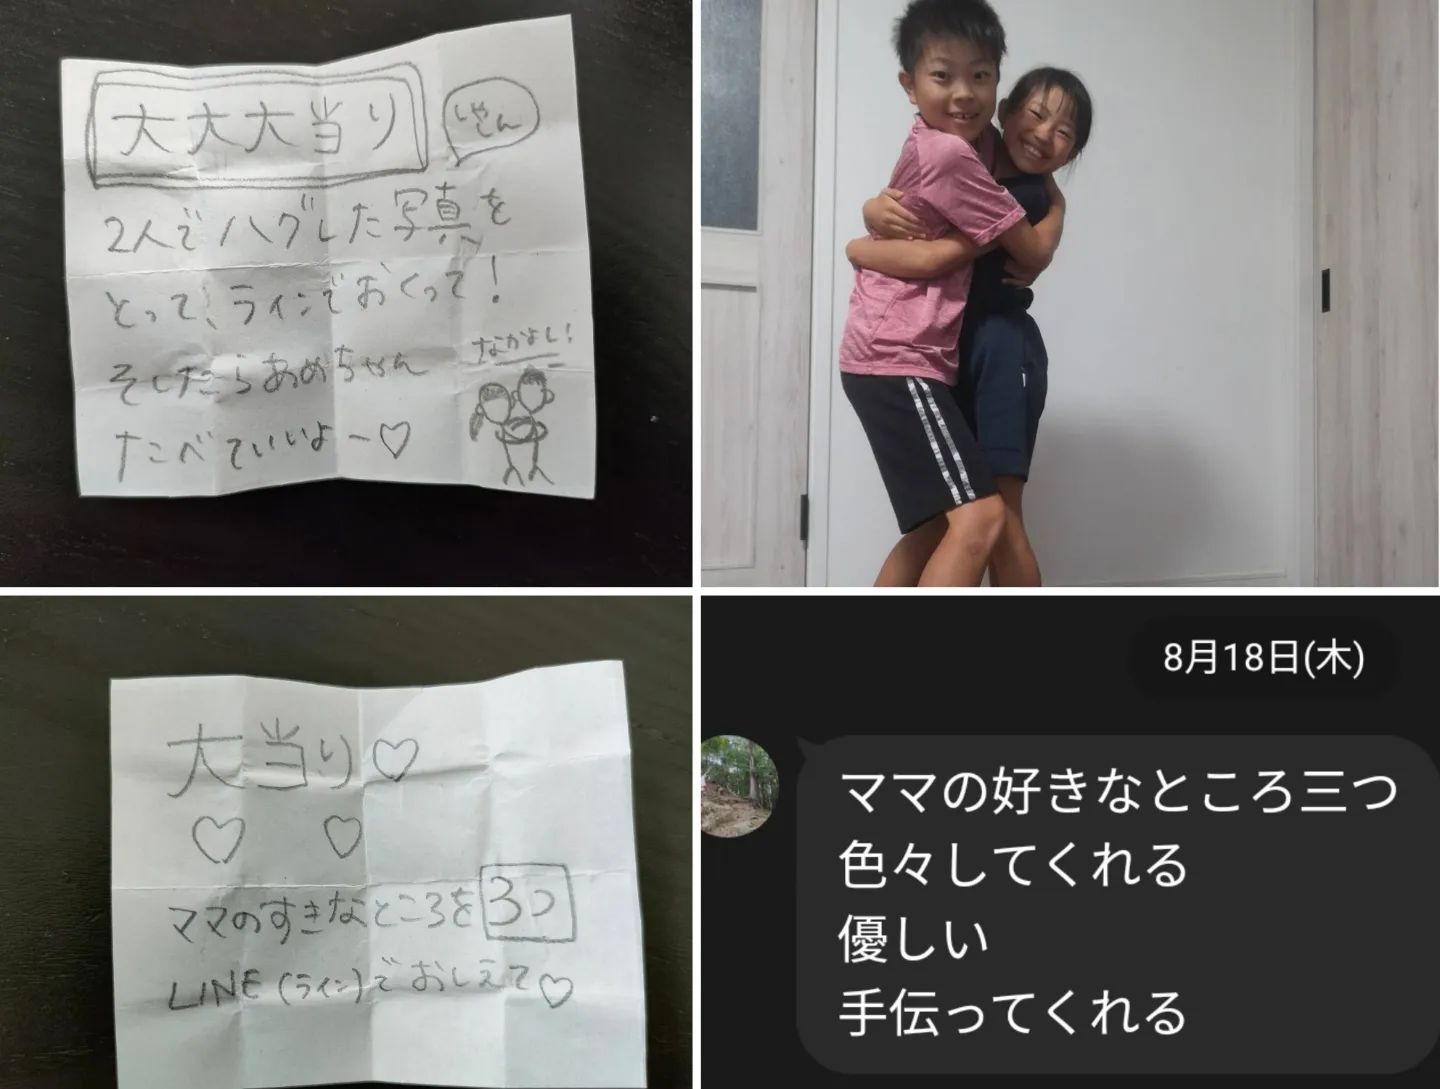 大大大当り
しゃしん
2人でハグした写真を
とって、ラインでおくって!
そしたらあめちゃん
たべていいよー♡
なかよし!
大当り♡
♡ ♡
ママのすきなところを3つ
LINE(ライン)でおしえて♡
8月18日(木)
ママの好きなところ三つ
色々してくれる
優しい
手伝ってくれる